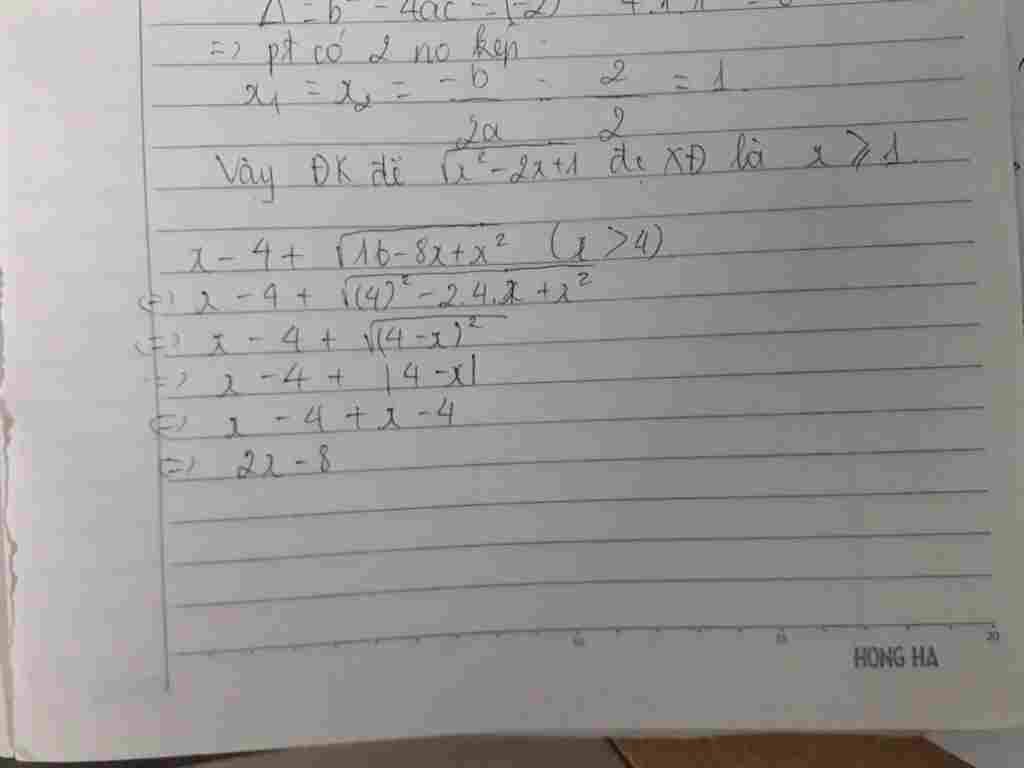 Δ = b² - 4ac = (-2)² - 4.1.1 = 0
=> pt có 2 no kép:
x₁ = x₂ = -b/2a = 2/2 = 1.
Vậy ĐK để √(x² - 2x + 1) đc XĐ là x ⩾ 1.
x - 4 + √(16 - 8x + x²) (x > 4)
(=) x - 4 + √((4)² - 2.4.x + x²)
(=) x - 4 + √((4 - x)²)
=> x - 4 + |4 - x|
(=) x - 4 + x - 4
=> 2x - 8
10 15 20
HONG HA